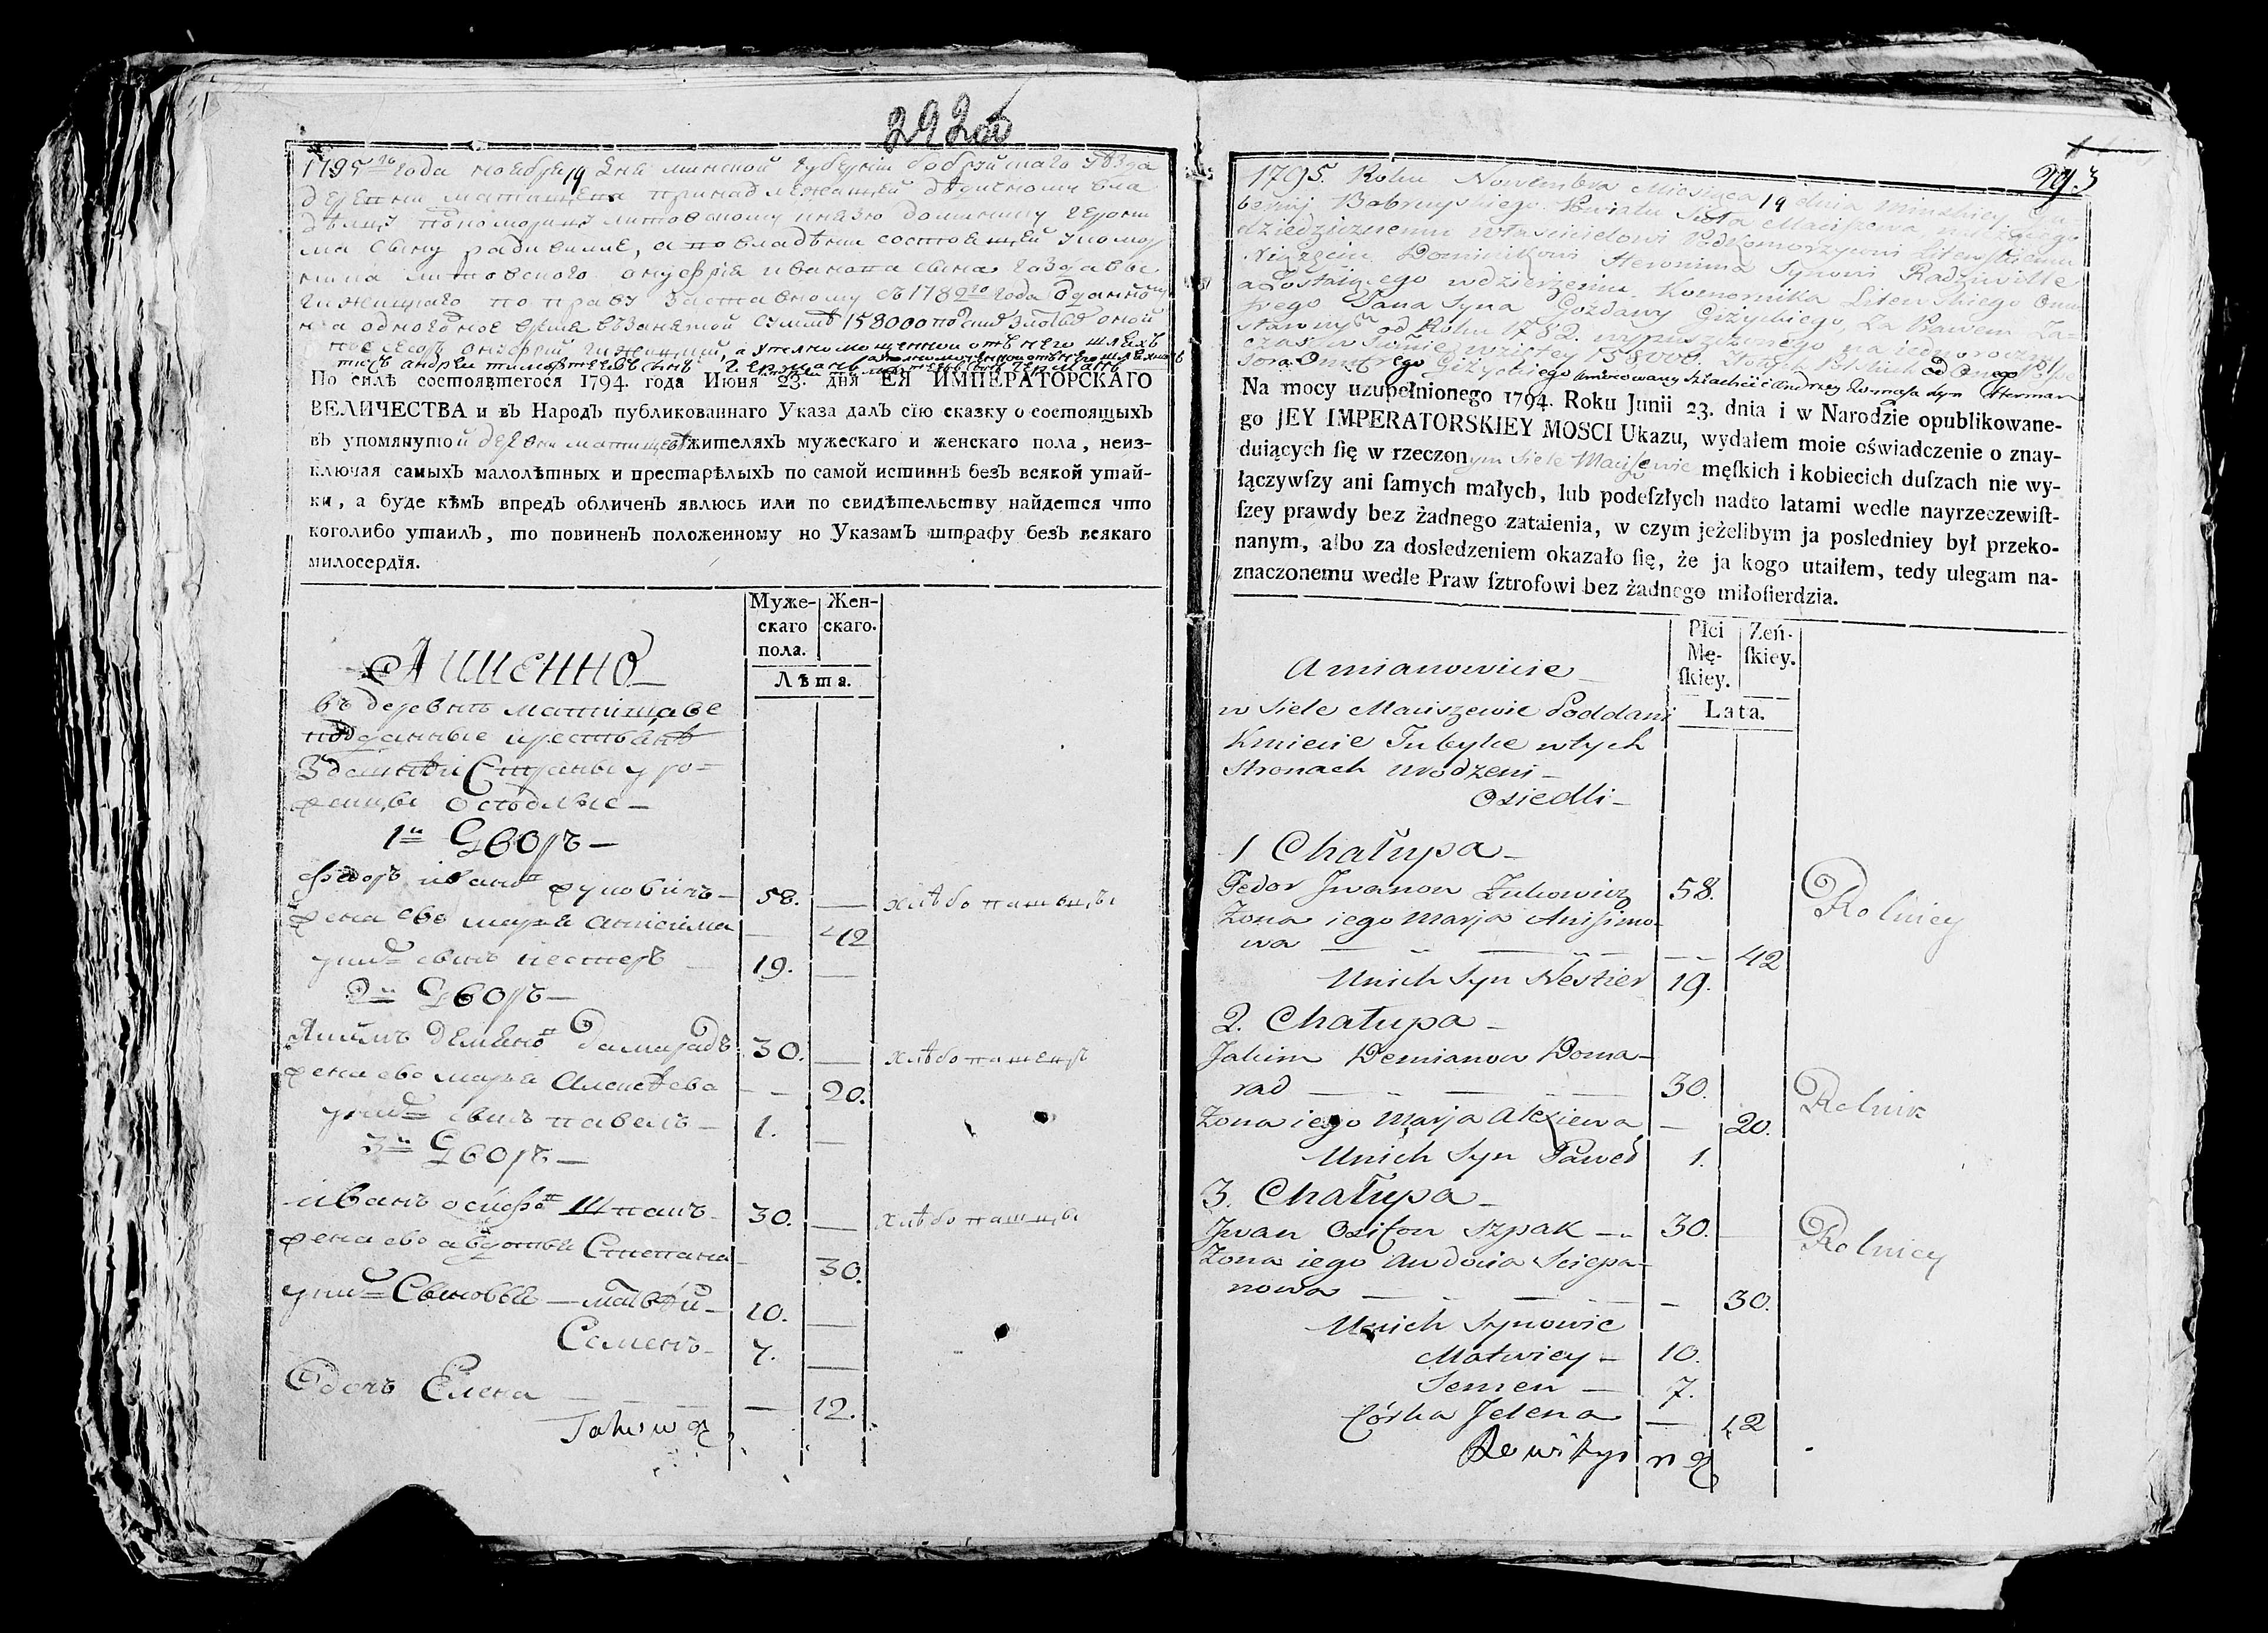 292об
1795го года ноября 19 дня минской губернiи бобруйскаго уѣзда
деревни матищева принадлежащей дѣдичному вла
дѣлцу подкоморцу литовскому князю доминику герони
ма сыну радивиллѣ, а по владѣнiи состоящей у комор
ника литовского онуфрiя иванова сына гоздавы
гижицкаго по праву заставному съ 1782го года
на одногодное время взаемной суммѣ 158000 польскихъ злотыхъ оной
онуфрiй гижицкiй, а уполномоченной отъ него шляхъ
тичъ андрей
По силѣ состоявшегося 1794. года Июня 23. дня ЕЯ ИМПЕРАТОРСКАГО
ВЕЛИЧЕСТВА и въ Народъ публикованнаго Указа далъ сїю сказку о состоящыхъ
въ упомянутой деревни матищевѣ жителяхъ мужескаго и женскаго пола, неиз-
ключая самыхъ малолѣтных и престарѣлыхъ по самой истиннѣ безъ всякой утай-
ки, а буде кѣмъ впредъ обличенъ явлюсь или по свидѣтельству найдется что
коголибо утаилъ, то повиненъ положенному но Указамъ штрафу безъ всякаго
милосердїя.
Муже-
скаго
пола.
Жен-
скаго.
Лѣта.
Аименно
въ деревнѣ матищеве
подданные крестьянѣ
Здешнѣй Страны уро=
женцы оседлые
1й Дворъ
федоръ иванов жуковичъ 58. — хлѣбопашецы
жена ево марья анисимова — 42
у них сынъ нестеръ 19. —
2й Дворъ
Якимъ демянов дамарадъ 30. — хлѣбопашецъ
жена ево марья Алексѣева — 20.
у них сынъ павелъ 1. —
3й Дворъ
иванъ осифов Шпакъ 30. — хлѣбопашцы
жена ево авдотья Степанова — 30.
у них Сыновья — матвѣй 10. —
Семенъ 7. —
Дочь Елена — 12.
293
1795. Roku Nowembra Miesiąca 19 dnia Minskiey Gu
bernij Bobruyskiego Powiatu Sioła Maciszewa należącego
dziedzicznemu właścicielowi Podkomorzycowi Litewskiemu
Xiążęciu Dominikowi Heronima Synowi Radziwille
a zostaiącego w dzierżeniu Komornika Litewskiego Onu
frego Jana Syna Gozdawy Giżyckiego, za Prawem Za=
stawnym od Roku 1782. wypuszczonego na iednoroczny
czas w Sumie wziętey 158000. Złotych Polskich od Onego
Onufrego Giżyckiego umocowany Szlachcic Andrzey Tomasza Syn Herman
Na mocy uzupełnionego 1794. Roku Junii 23. dnia i w Narodzie opublikowane-
go JEY IMPERATORSKIEY MOSCI Ukazu, wydałem moie oświadczenie o znay-
duiących ſię w rzeczonym Siele Maciszewie męſkich i kobiecich duſzach nie wy-
łączywſzy ani ſamych małych, lub podeſzłych nadto latami wedle nayrzeczewiſt-
ſzey prawdy bez żadnego zataienia, w czym jeżelibym ja posledniey był przeko-
nanym, albo za dosledzeniem okazało ſię, że ja kogo utaiłem, tedy ulegam na-
znaczonemu wedle Praw ſztrofowi bez żadnego miłoſierdzia.
Płci
Mę-
ſkiey.
Zeń-
ſkiey.
Lata.
Amianowicie
w Siele Maciszewie Poddani
Kmiecie Tubylce w tych
Stronach urodzeni
Osiedli
1 Chałupa
Fedor Jwanow Żukowicz 58. Rolnicy
Żona iego Marja Anisimo-
wa — 42
Unich Syn Nestier 19.
2. Chałupa
Jakim Demianow Doma-
rad 30. Rolnik
Żona iego Marja Alexiewa — 20.
Unich Syn Paweł 1.
3. Chałupa
Jwan Osifow Szpak 30. Rolnicy
Żona iego Awdocia Sciepa-
nowa — 30.
Unich Synowie
Matwiey 10.
Semen 7.
Córka Jelena — 12